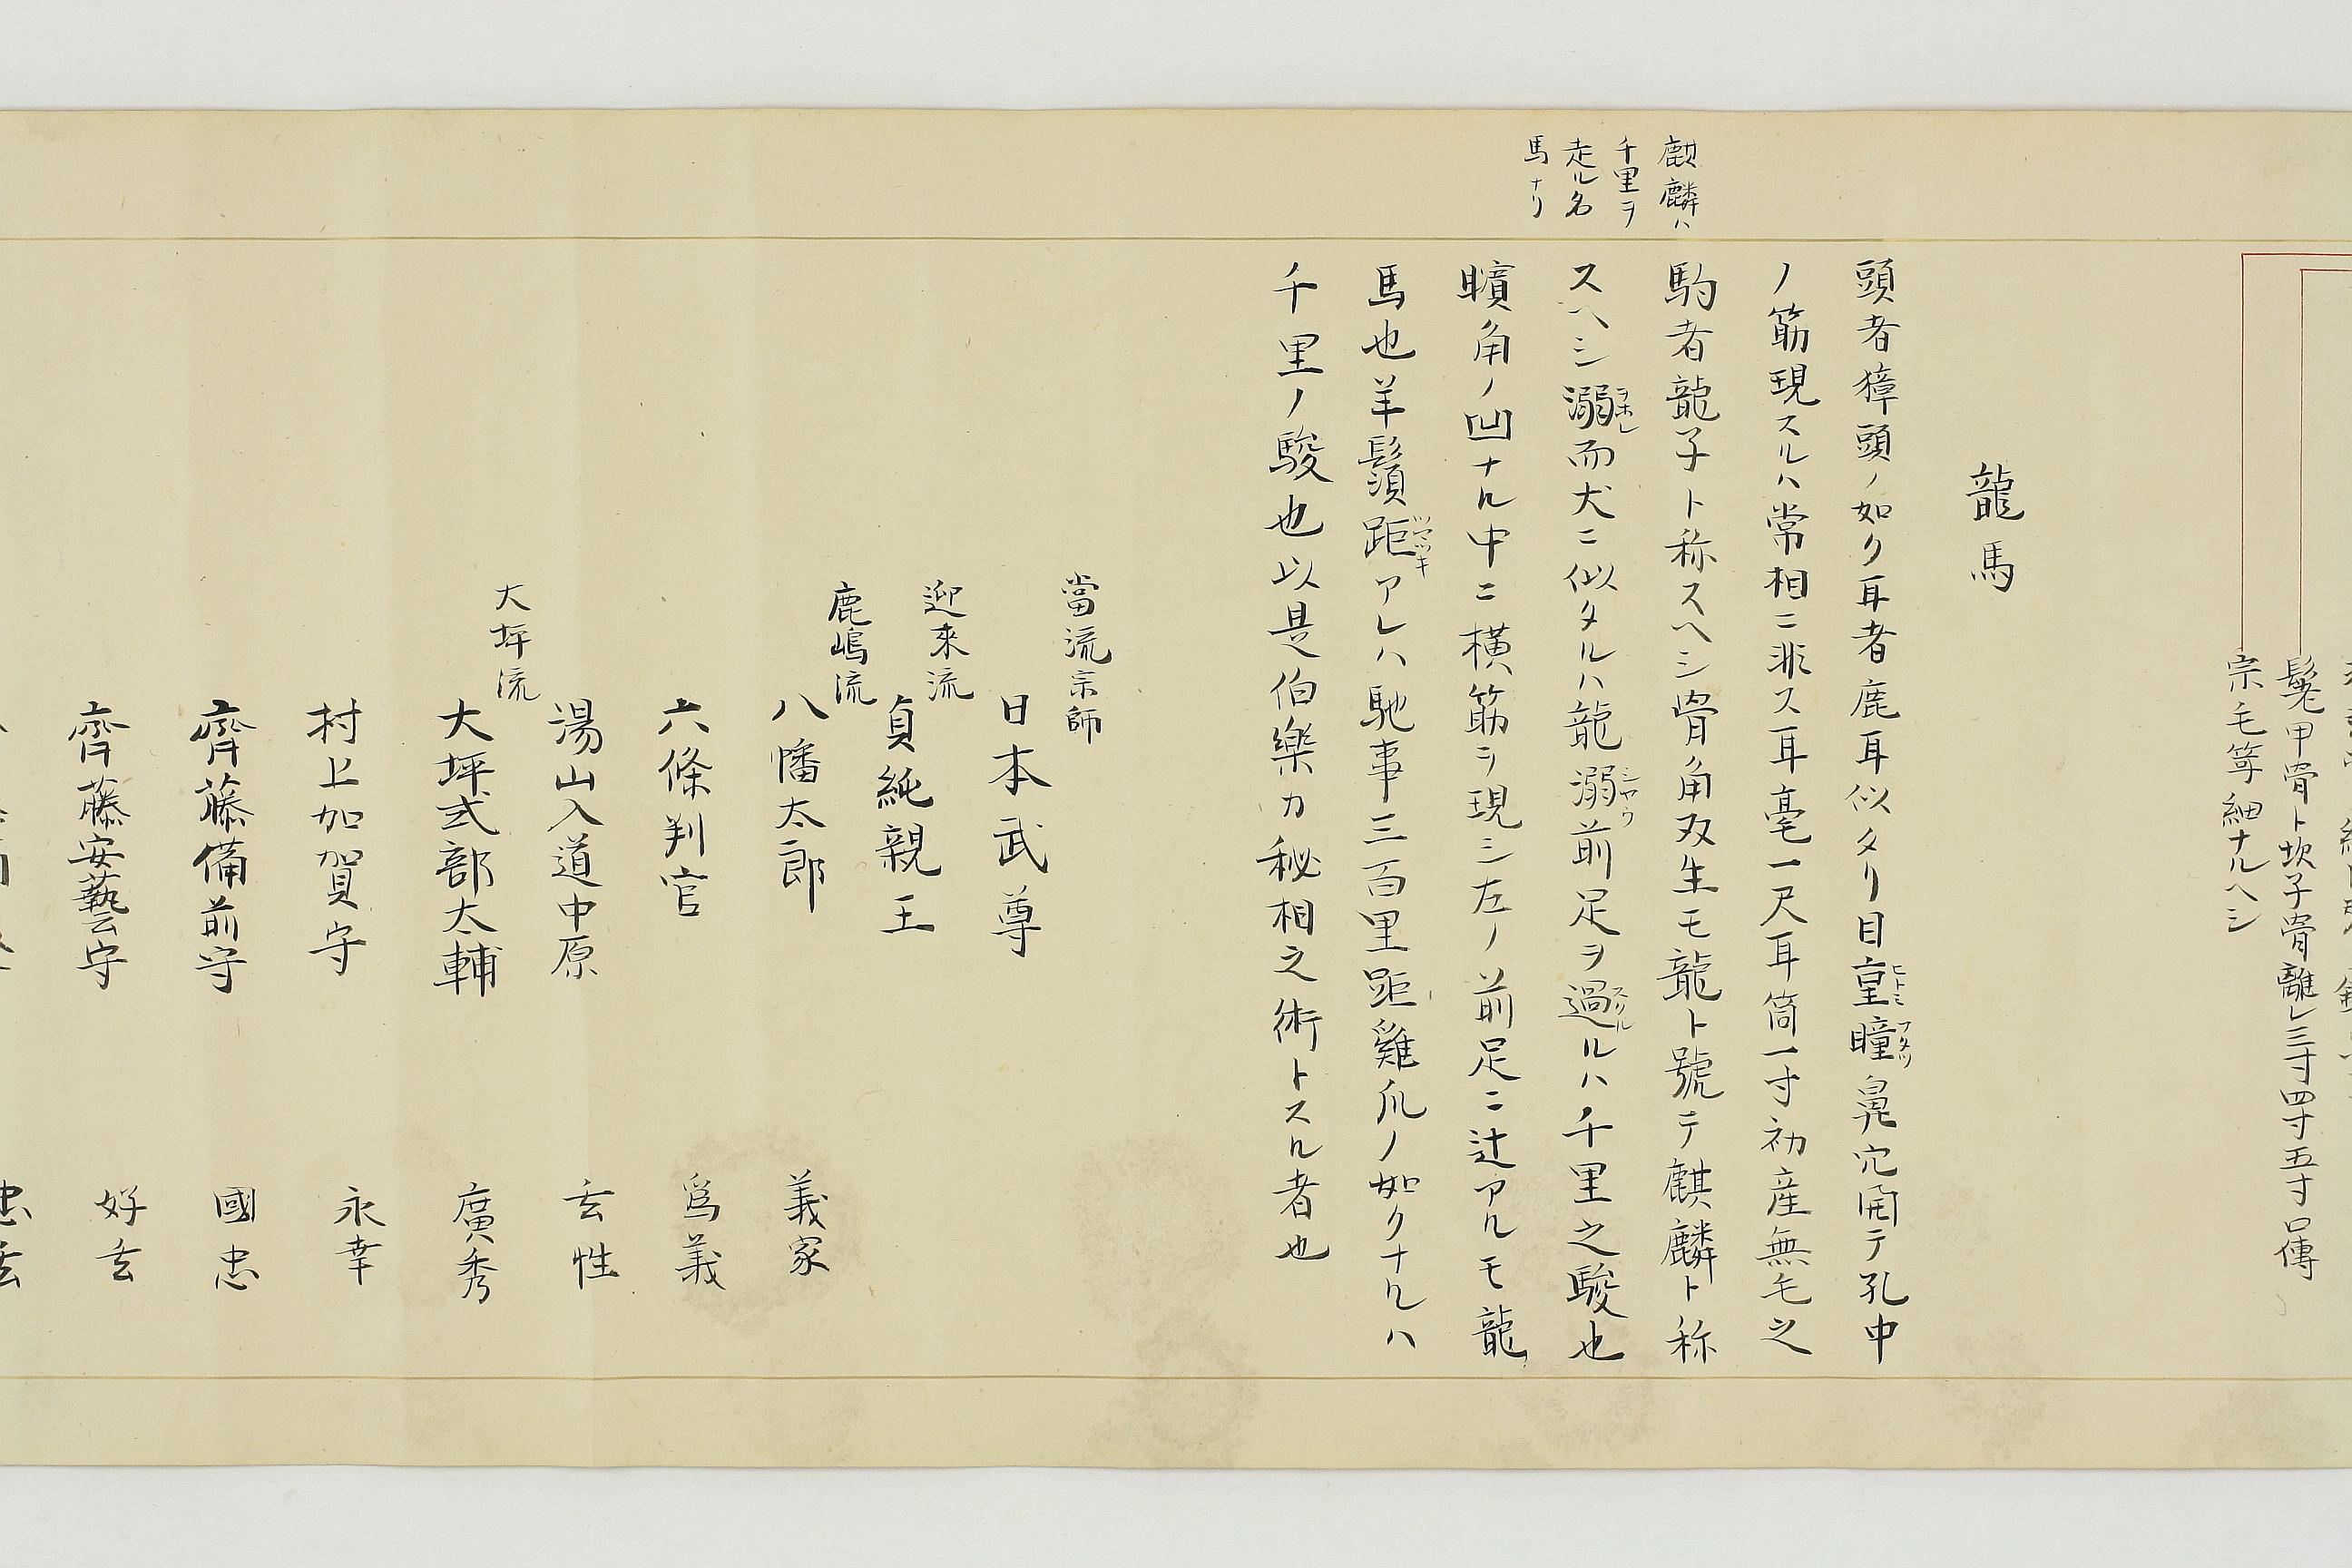 髦甲骨ト坎子骨離レ三寸四寸五寸口傳
宗毛䓁細ナルヘシ
龍馬
頭者獐頭ノ如ク耳者鹿耳似タリ目皇瞳鼻穴開テ孔中
ヒトミ
フタツ
ノ筋現スルハ常相ニ非ス耳毫一尺耳筒一寸初産無毛之
麒麟ハ
千里ヲ
走ル名
馬ナリ
駒者龍子ト称スヘシ骨角双生モ龍ト號テ麒麟ト称
スヘシ溺而犬ニ似タルハ龍溺前足ヲ過ルハ千里之駿也
ヲホレ
シヤウ
スクル
矌角ノ凹ナル中ニ横筋ヲ現シ左ノ前足ニ辻アルモ龍
馬也羊鬚距アレハ馳事三百里距雞爪ノ如クナルハ
千里ノ駿也以是伯樂カ秘相之術トスル者也
當流宗師
日本武尊
迎來流
貞純親王
鹿嶋流
八幡太郎 義家
六條判官 爲義
湯山入道中原 玄性
大坪流
大坪式部太輔 廣秀
村上加賀守 永幸
齊藤備前守 國忠
齊藤安藝守 好玄
忠玄